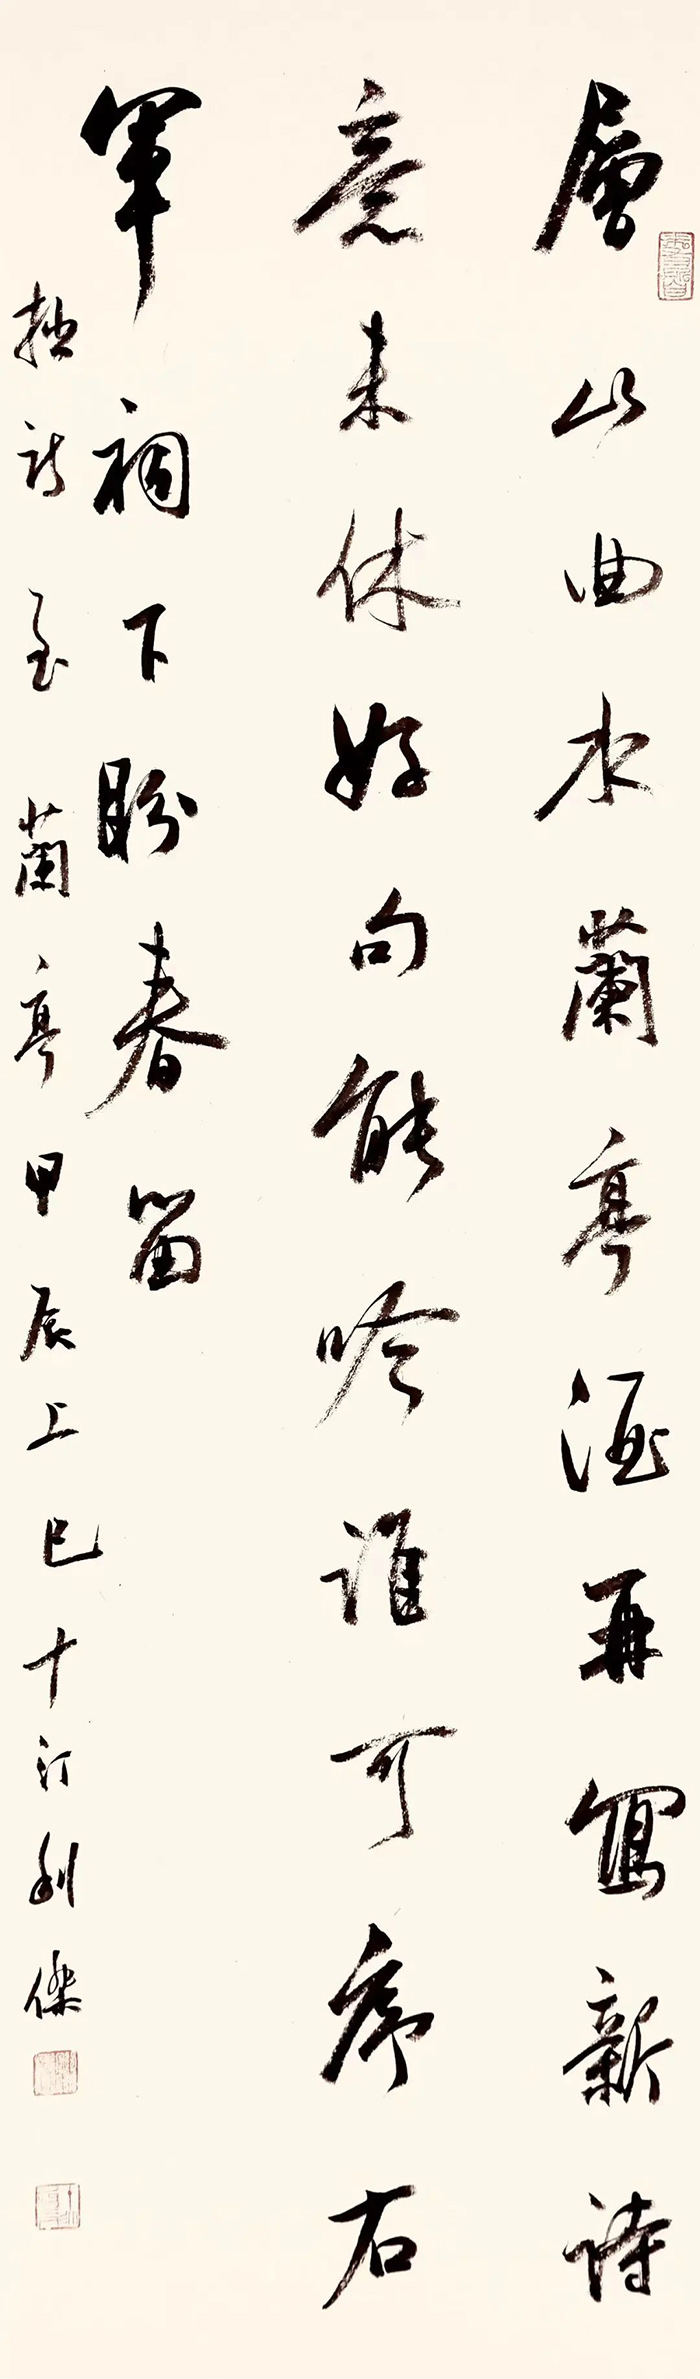 層山曲水蘭亭酒再寫新詩
意未休好句能吟誰可序右
軍祠下盼春留
拙詩至蘭亭甲辰上巳十汀刘傑